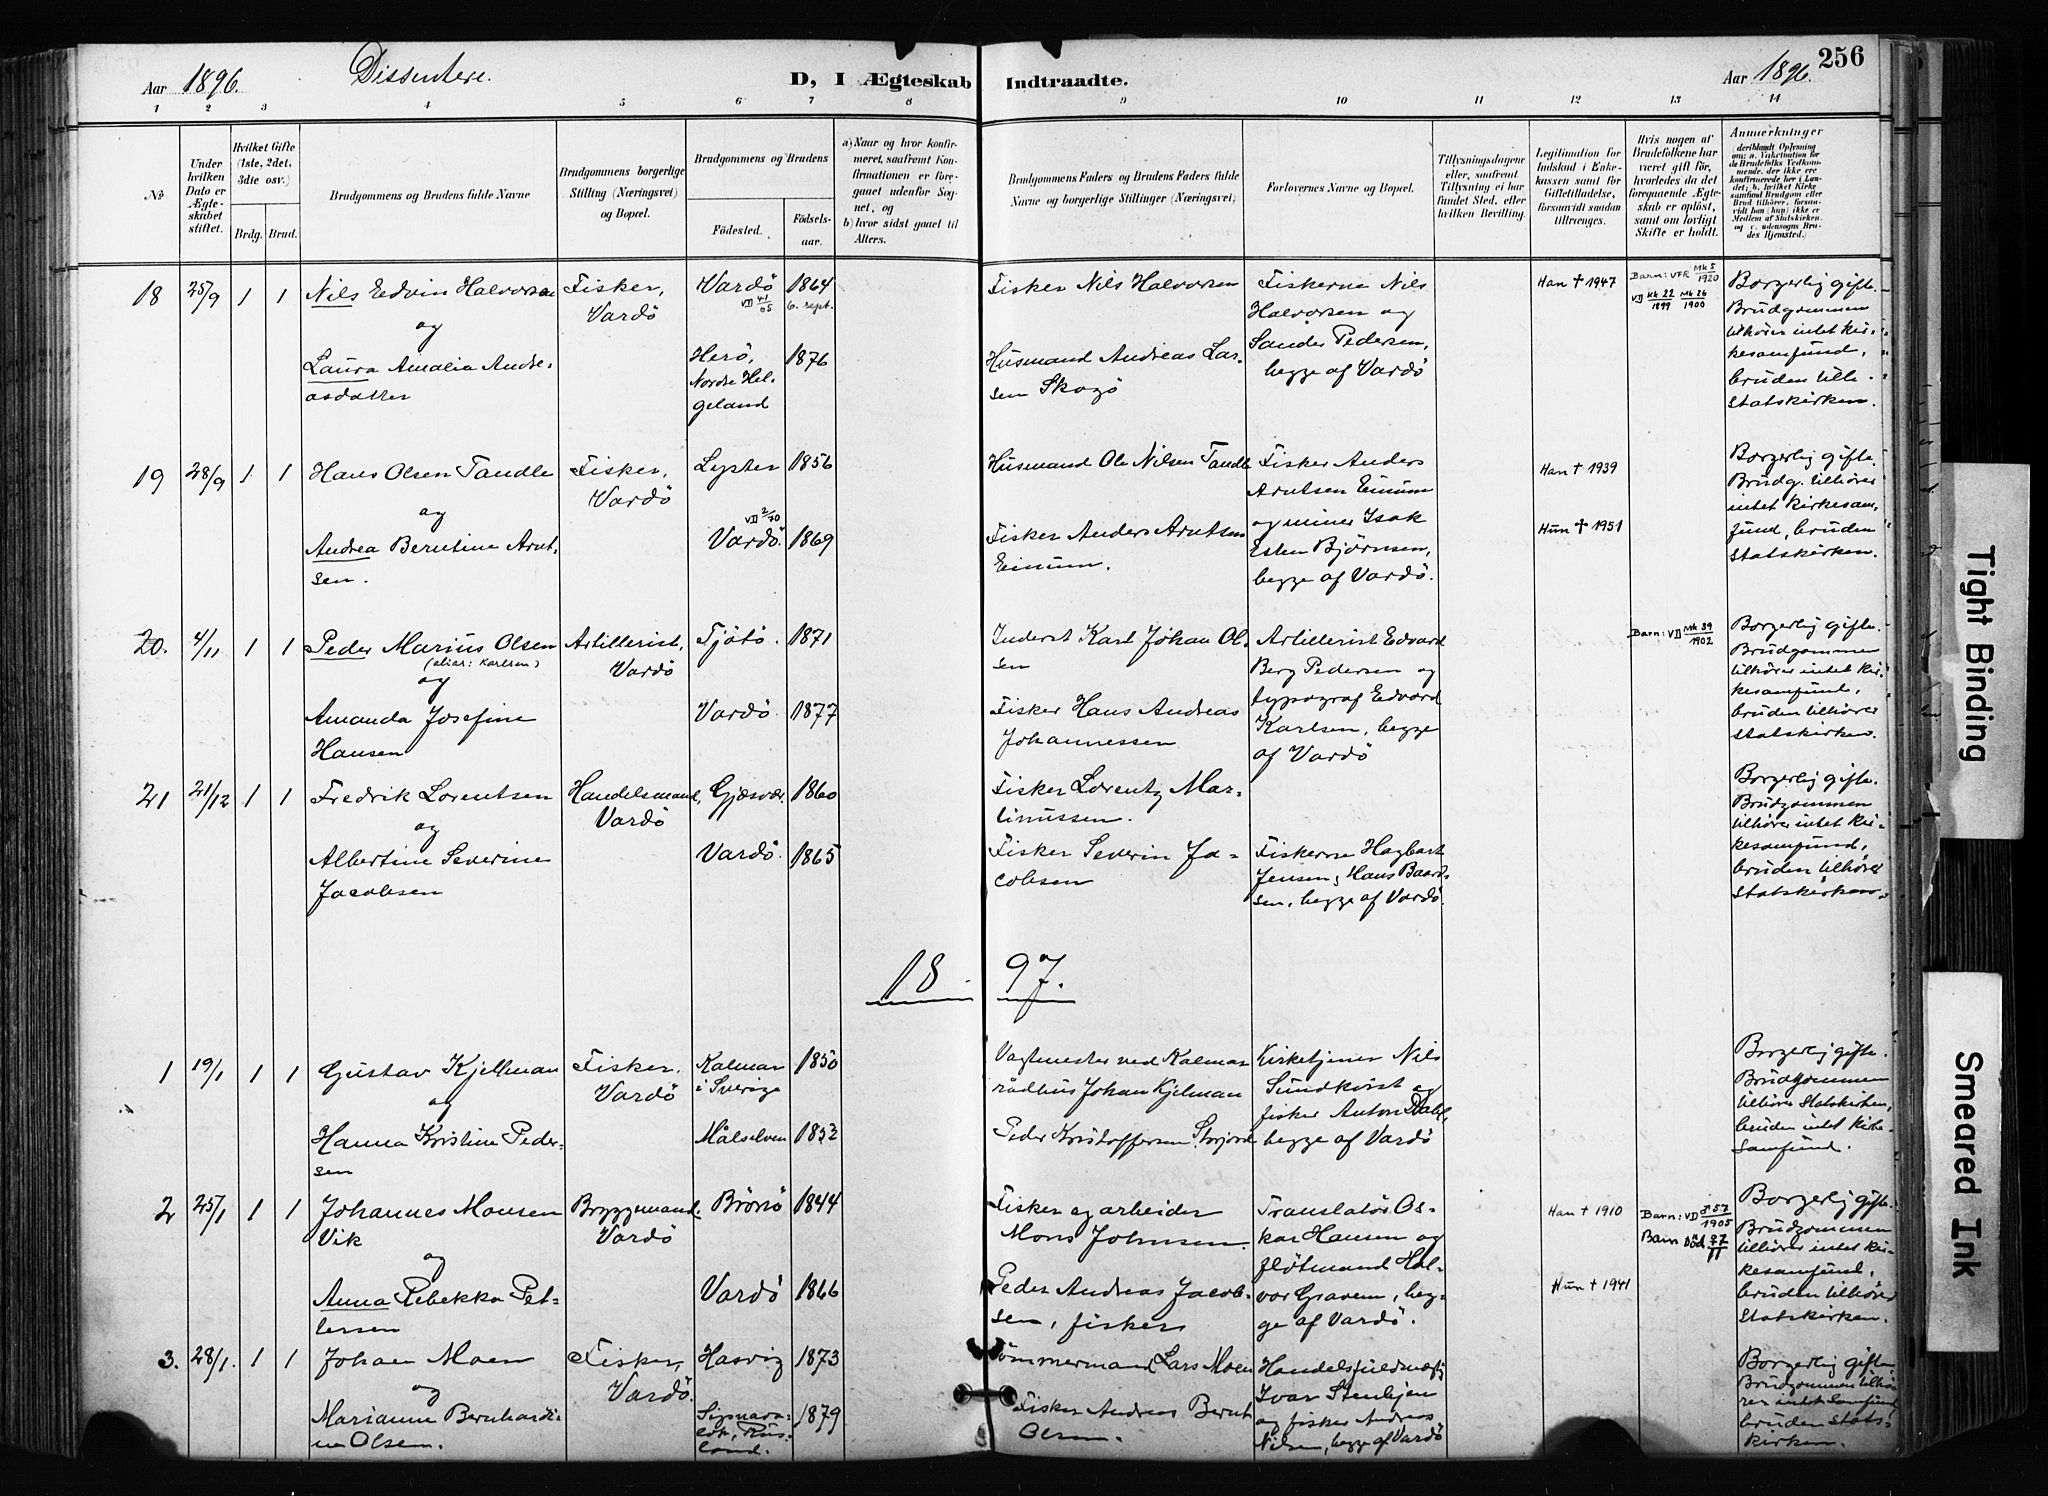 256
Aar 1896. Dissentere. D, I Ægteskab Indtraadte. Aar 1896.
1 2 3 4 5 6 7 8 9 10 11 12 13 14
No
Under hvilken Dato er Ægteskabet stiftet.
Hvilket Gifte (1ste, 2det, 3die osv.)
Brdg. Brud.
Brudgommens og Brudens fulde Navne
Brudgommens borgerlige Stilling (Næringsvei) og Bopæl.
Brudgommens og Brudens
Födested. Födselsaar.
a) Naar og hvor konfirmeret, saafremt Konfirmationen er foregaaet udenför Sognet, og
b) hvor sidst gaaet til Alters.
Brudgommens Faders og Brudens Faders fulde Navne og borgerlige Stillinger (Næringsvei)
Forlovernes Navne og Bopæl.
Tillysningsdagene eller, saafremt Tillysning ei har fundet Sted, efter hvilken Bevilling.
Legitimation for Indskud i Enkekassen samt for Giftetilladelse, forsaavidt saadan tiltrænges.
Hvis nogen af Brudefolkene har været gift för, hvorledes da det foregaaende Ægteskab er oplöst, samt om lovligt Skifte er holdt.
Anmerkninger
deriblandt Oplysning om: a. Vakcination för de Brudefolks Vedkommende, der ikke ere konfirmerede her i Landet; b. hvilket Kirkesamfund Brudgom eller Brud tilhörer, forsaavidt han (hun) ikke er Medlem af Statskirken, og c. udensogns Brudes Hjemsted.)
18 25/9 1 1 Nils Edvin Halvorsen
og
Laura Amalia Andreasdatter
Fisker, Vardö
Vardö 1864
VD 41/65 6. sept.
Herö, Nordre Helgeland 1876
Fisker Nils Halvorsen
Husmand Andreas Larsen Skogö
Fiskerne Nils Halvorsen og Sander Pedersen, begge af Vardö
Han † 1947
Barn: VFR Mk 5/1920
VD Kk 22/1899 Mk 26/1900
Borgerlig gifte. Brudgommen tilhörer intet kirkesamfund, bruden tilh. Statskirken.
19 28/9 1 1 Hans Olsen Tandle
og
Andrea Berntine Arntsen.
Fisker, Vardö
Lyster 1856
VD 2/70
Vardö. 1869
Husmand Ole Nilsen Tandle
Fisker Anders Arntsen Einum.
Fisker Anders Arntsen Einum og miner Isak Esten Björnsen, begge af Vardö.
Han † 1939
Hun † 1951
Borgerlig gifte. Brudg. tilhörer intet kirkesamfund, bruden Statskirken.
20. 4/11 1 1 Peder Marius Olsen
(alias: Karlsen)
og
Amanda Josefine Hansen
Artillerist, Vardö
Tjötö. 1871
Vardö. 1877
Inderst Karl Johan Olsen
Fisker Hans Andreas Johannessen
Artillerist Edvard Berg Pedersen og typograf Edvard Karlsen, begge af Vardö
Barn: VD Mk 39/1902
Borgerlig gifte. Brudgommen tilhörer intet kirkesamfund, bruden tilhörer Statskirken.
21 21/12 1 1 Fredrik Lorentsen
og
Albertine Severine Jacobsen
Handelsmand, Vardö
Gjæsvær. 1860
Vardö. 1865
Fisker Lorentz Martinussen.
Fisker Severin Jacobsen
Fiskerne Hagbart Jensen, Hans Baardsen, begge af Vardö.
Borgerlig gifte. Brudgommen tilhörer intet kirkesamfund, bruden tilhörer Statskirken.
1897.
1 19/1 1 1 Gustav Kjellman
og
Hanna Kristine Pedersen
Fisker, Vardö
Kalmar i Sverige 1850
Målselven 1852
Vagtmester ved Kalmar rådhus Johan Kjelman
Peder Kristoffersen Storjord
Kirketjener Nils Sundkvist og fisker Anton Dahl, begge af Vardö
Borgerlig gifte. Brudgommen tilhörer Statskirken, bruden intet kirkesamfund.
2 25/1 1 1 Johannes Monsen Vik
og
Anna Rebekka Petersen
Bryggemand, Vardö
Börsö 1844
Vardö 1866
Fisker og arbeider Mons Johnsen.
Peder Andreas Jacobsen, fisker
Translatör Oskar Hansen og flötmand Halvor Gravem, begge af Vardö.
Han † 1910
Hun † 1941
Barn: VD J 57/1905
Barn Död 27/11
Borgerlig gifte. Brudgommen tilhörer intet kirkesamfund, bruden tilhörer Statskirken.
3. 28/1. 1 1 Johan Moen
og
Marianne Bernhardine Olsen.
Fisker, Vardö.
Hasvig 1873
Rusland. 1879
Tömmermand Lars Moen
Fisker Andreas Bernt Olsen.
Ivar Stenhjen og fisker Andreas Nilsen, begge af Vardö
Borgerlig gifte Brudgommen tilhörer intet Samfund, bruden Statskirken.
Tight Binding
Smeared Ink